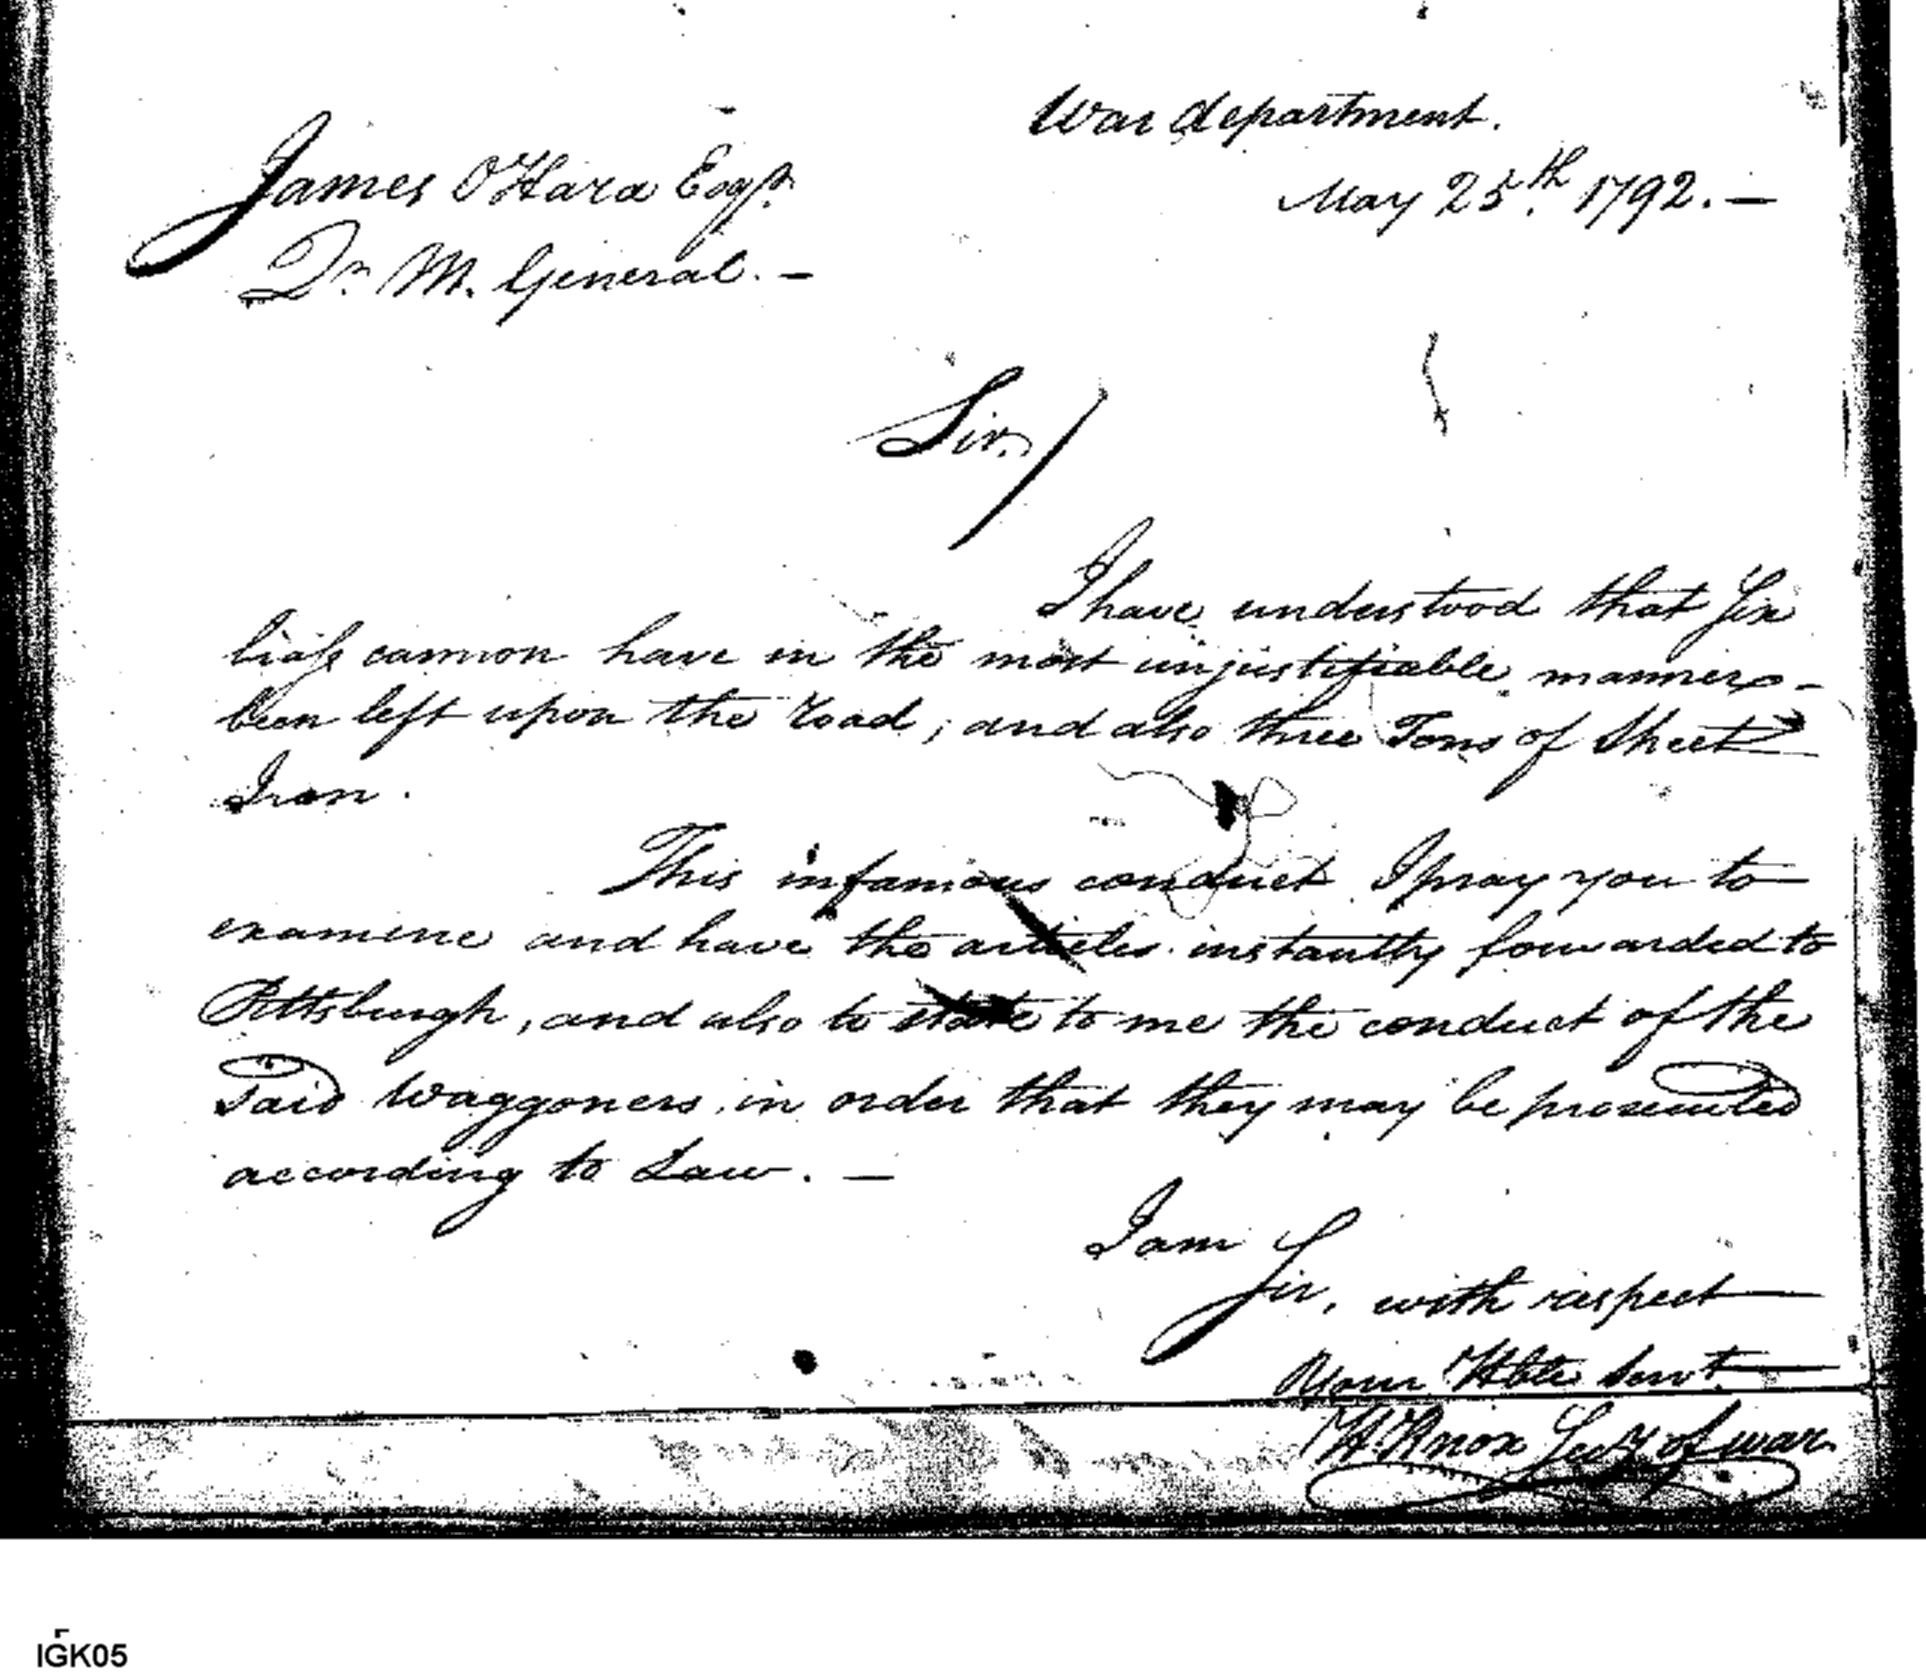 War department.
May 25th 1792.—
James OHara Esqr.
Qr. M. General.—
Sir,
I have understood that Six
brass cannon have in the most unjustifiable manner-
been left upon the road; and also three Tons of Sheet
Iron.
This infamous conduct I pray you to
examine and have the articles instantly forwarded to
Pittsburgh, and also to state to me the conduct of the
said Waggoners, in order that they may be prosecuted
according to Law.—
I am
Sir, with respect
Your Hble Servt.
H. Knox Secy of war.
IGK05